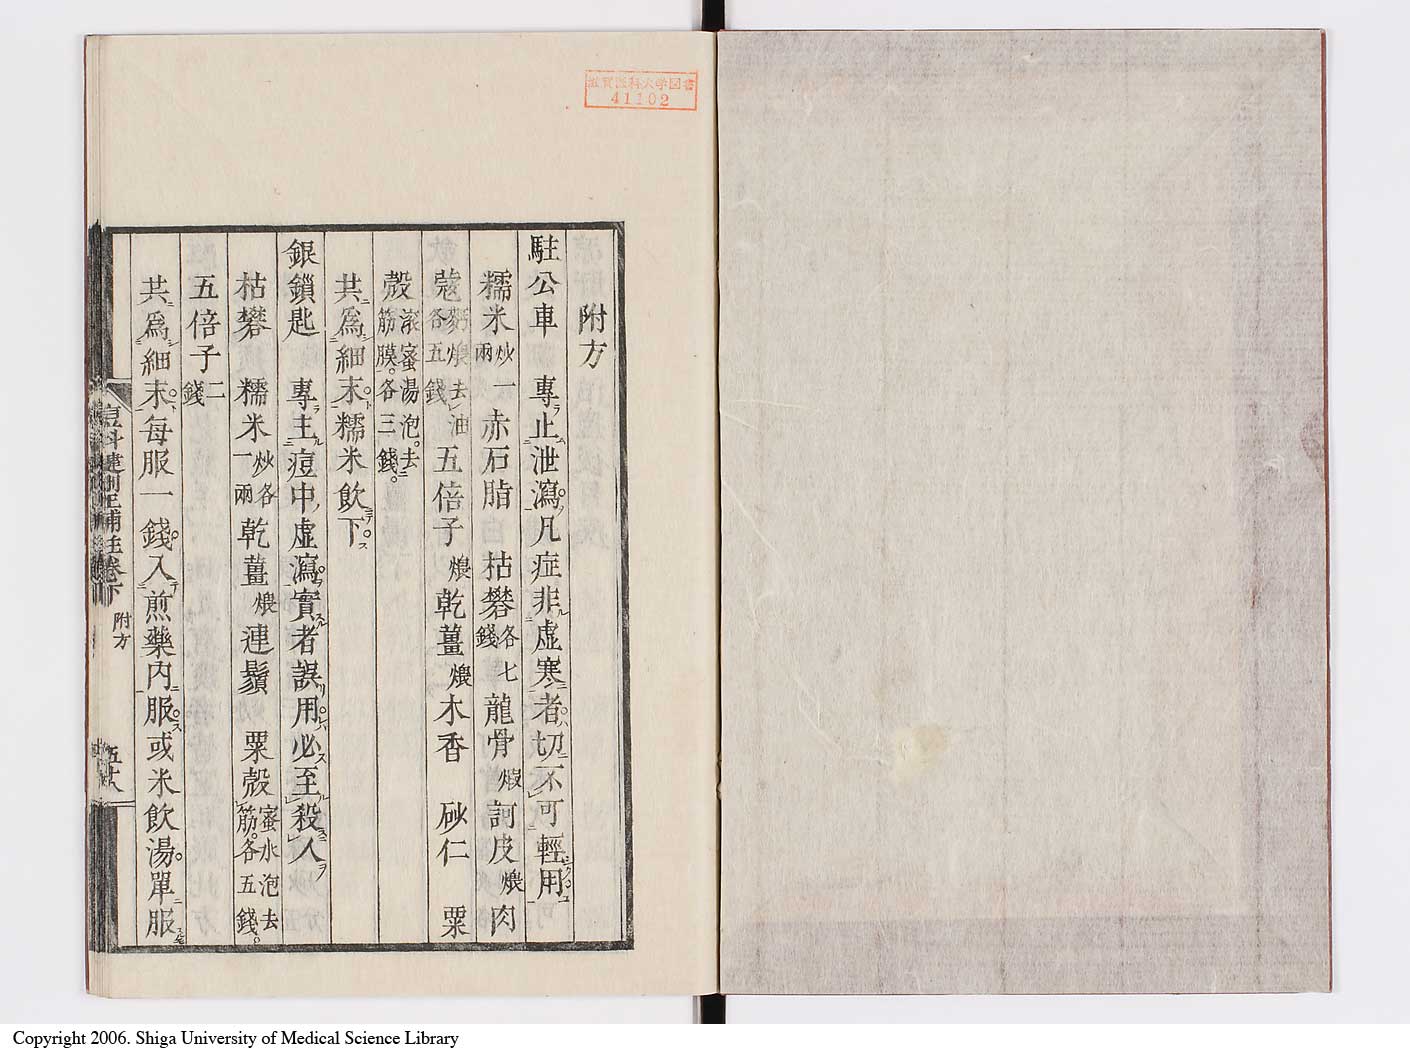 滋賀医科大学図書
41102
附方
駐公車　專止泄瀉凡症非虚寒者切不可輕用
糯米炒一兩赤石脂　枯礬各七錢龍骨煅訶皮煨肉
蔻麪煨去油各五錢五倍子煨乾薑煨木香　砂仁　粟
殼滚蜜湯泡去筋膜各三錢
共爲細末糯米飲下
銀鎖匙　專主痘中虚瀉實者誤用必至殺人
枯礬　糯米炒各一兩乾薑煨連鬚　粟殼蜜水泡去筋各五錢
五倍子二錢
共爲細末每服一錢入煎藥内服或米飲湯單服
卷下
附方
五十八
Copyright 2006. Shiga University of Medical Science Library